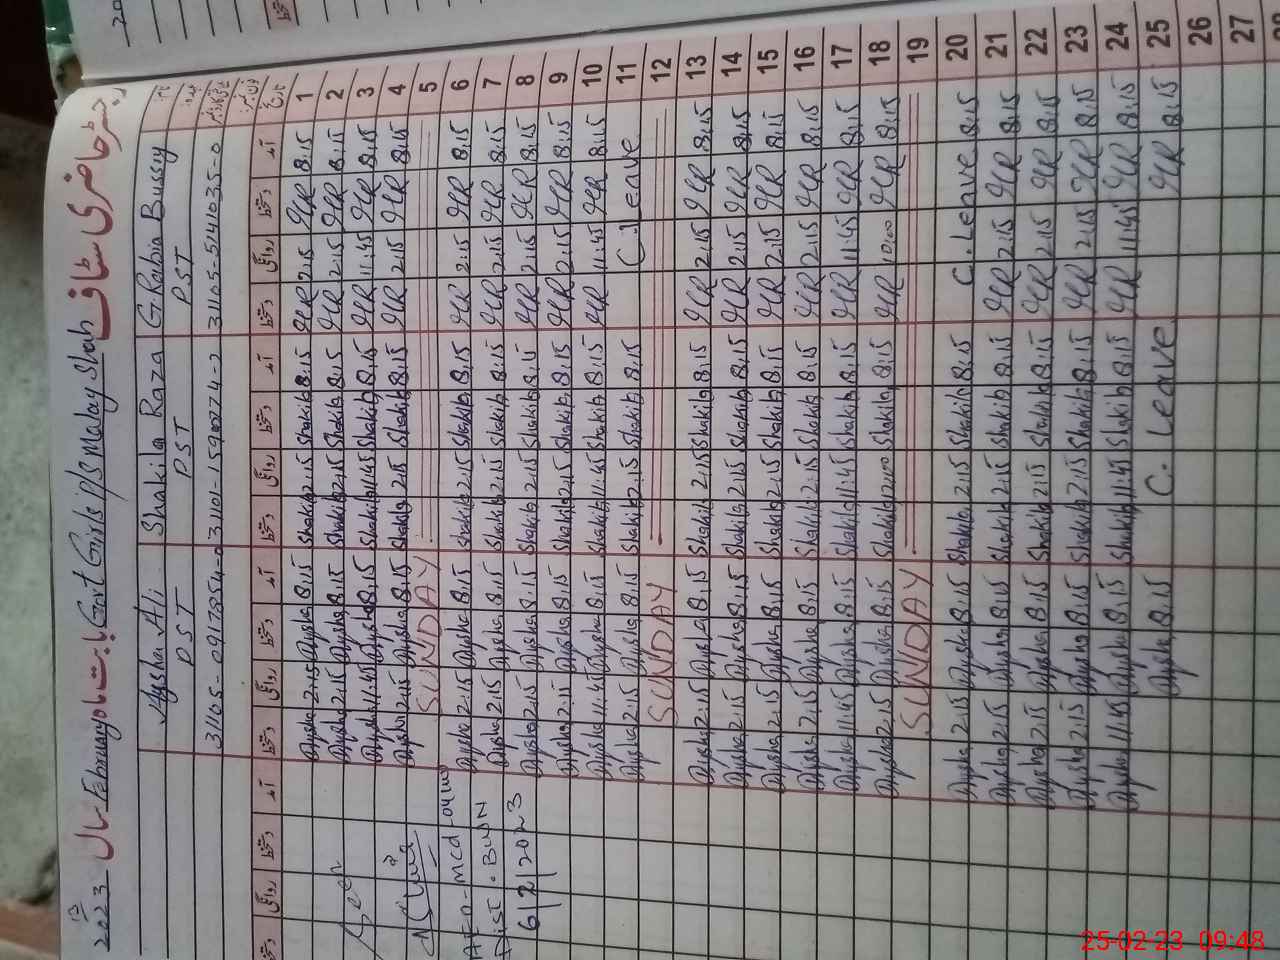 رجسٹر حاضری سٹاف Govt Girls P/S Malay Shah بابت ماہ February سال 2023
نام G. Rabia Bussry Shakila Raza Aysha Ali
عہدہ PST PST PST
شناختی کارڈ 31105-5141035-0 31105-0917854-0
تاریخ آمد دستخط روانگی دستخط آمد دستخط روانگی دستخط آمد دستخط روانگی دستخط آمد دستخط روانگی دستخط
1 8:15 GR 2:15 GR 8:15 Shakila 2:15 Shakila 8:15 Aysha 2:15 Aysha
2 8:15 GR 2:15 GR 8:15 Shakila 2:15 Shakila 8:15 Aysha 2:15 Aysha
3 8:15 GR 11:45 GR 8:15 Shakila 11:45 Shakila 8:15 Aysha 11:45 Aysha Seen
4 8:15 GR 2:15 GR 8:15 Shakila 2:15 Shakila 8:15 Aysha 2:15 Aysha
5 SUNDAY
6 8:15 GR 2:15 GR 8:15 Shakila 2:15 Shakila 8:15 Aysha 2:15 Aysha
7 8:15 GR 2:15 GR 8:15 Shakila 2:15 Shakila 8:15 Aysha 2:15 Aysha Dist. BWN
8 8:15 GR 2:15 GR 8:15 Shakila 2:15 Shakila 8:15 Aysha 2:15 Aysha 6/2/2023
9 8:15 GR 2:15 GR 8:15 Shakila 2:15 Shakila 8:15 Aysha 2:15 Aysha
10 8:15 GR 11:45 GR 8:15 Shakila 11:45 Shakila 8:15 Aysha 11:45 Aysha
11 C. Leave 8:15 Shakila 2:15 Shakila 8:15 Aysha 2:15 Aysha
12 SUNDAY
13 8:15 GR 2:15 GR 8:15 Shakila 2:15 Shakila 8:15 Aysha 2:15 Aysha
14 8:15 GR 2:15 GR 8:15 Shakila 2:15 Shakila 8:15 Aysha 2:15 Aysha
15 8:15 GR 2:15 GR 8:15 Shakila 2:15 Shakila 8:15 Aysha 2:15 Aysha
16 8:15 GR 2:15 GR 8:15 Shakila 2:15 Shakila 8:15 Aysha 2:15 Aysha
17 8:15 GR 11:45 GR 8:15 Shakila 11:45 Shakila 8:15 Aysha 11:45 Aysha
18 8:15 GR 10:00 GR 8:15 Shakila 12:00 Shakila 8:15 Aysha 2:15 Aysha
19 SUNDAY
20 8:15 C. Leave 8:15 Shakila 2:15 Shakila 8:15 Aysha 2:15 Aysha
21 8:15 GR 2:15 GR 8:15 Shakila 2:15 Shakila 8:15 Aysha 2:15 Aysha
22 8:15 GR 2:15 GR 8:15 Shakila 2:15 Shakila 8:15 Aysha 2:15 Aysha
23 8:15 GR 2:15 GR 8:15 Shakila 2:15 Shakila 8:15 Aysha 2:15 Aysha
24 8:15 GR 11:45 GR 8:15 Shakila 11:45 Shakila 8:15 Aysha 11:45 Aysha
25 8:15 GR C. Leave 8:15 Aysha
26
27
25-02-23 09:48